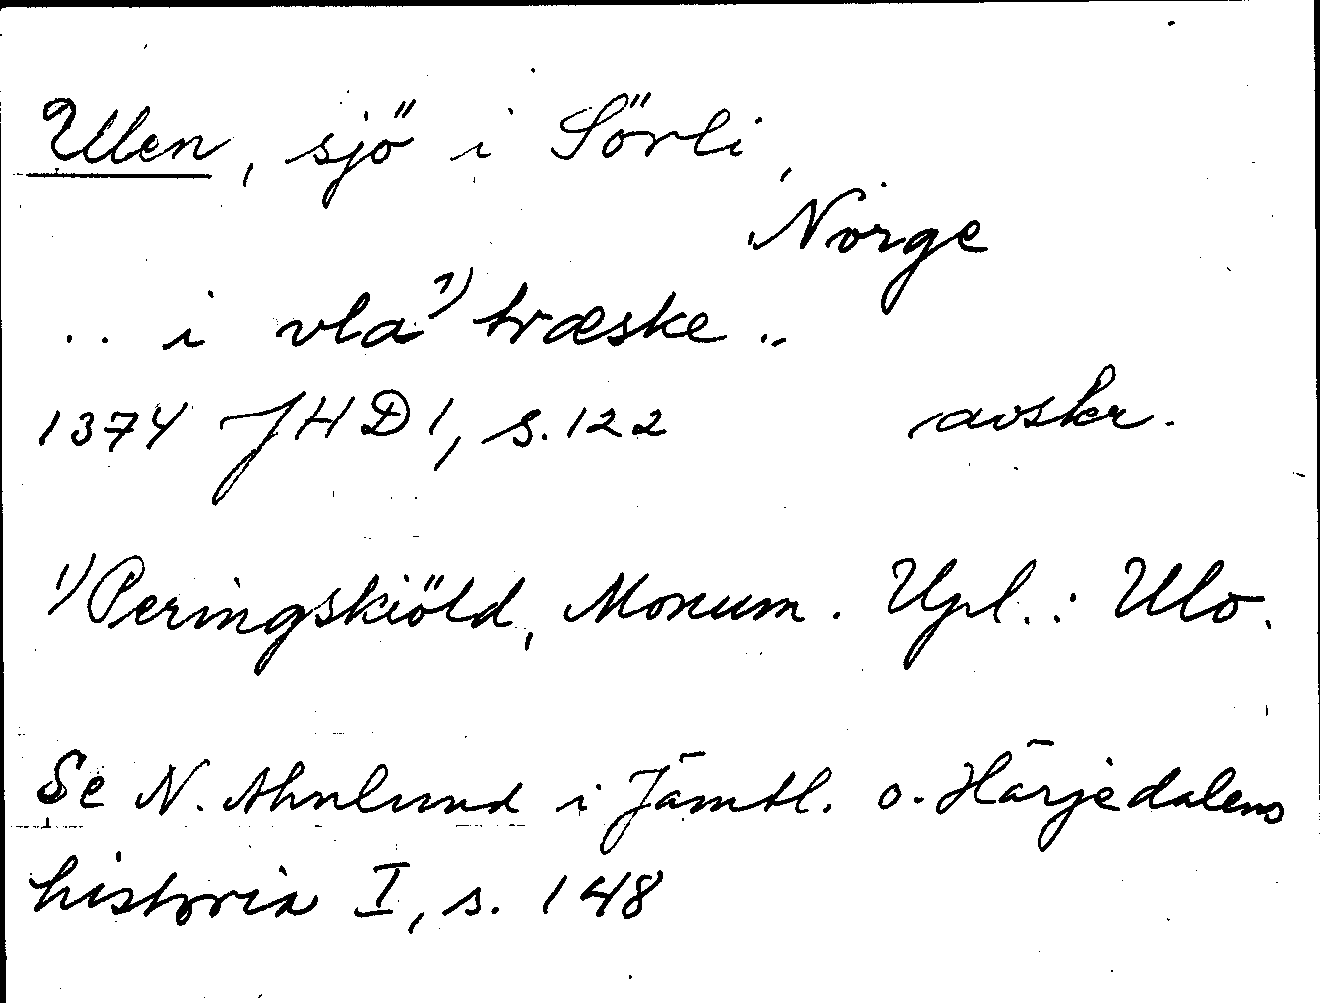 Ulen, sjö i Sörli,
Norge
.. i vla 1) træske ..
1374 JHD 1, s. 122 avskr.
1) Peringskiöld, Monum. Upl.: Ulo.
Se N. Ahnlund i Jämtl. o. Härjedalens
historia I, s. 148